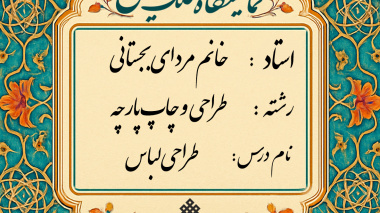 نمایشگاه
استاد : خانم مردای بجستانی
رشته : طراحی و چاپ پارچه
نام درس: طراحی لباس